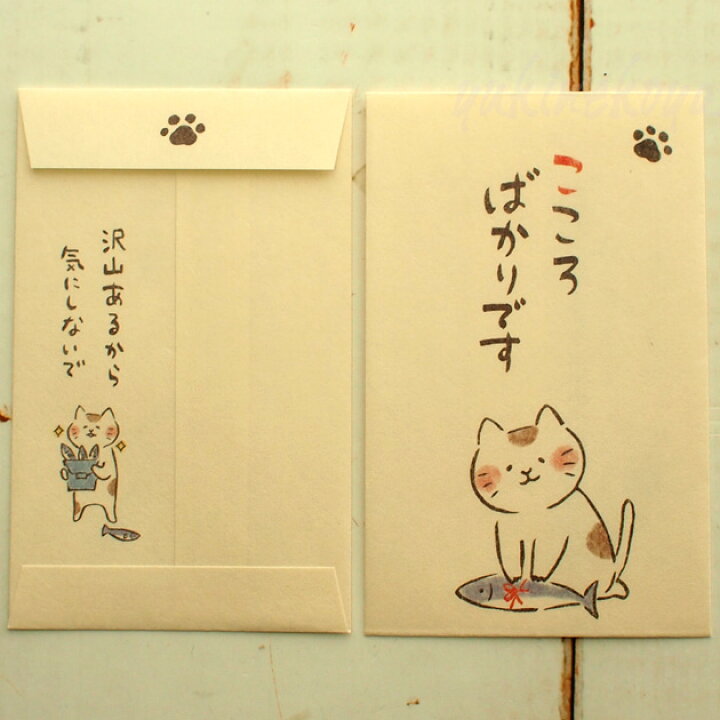 こころ
ばかりです
沢山あるから
気にしないで